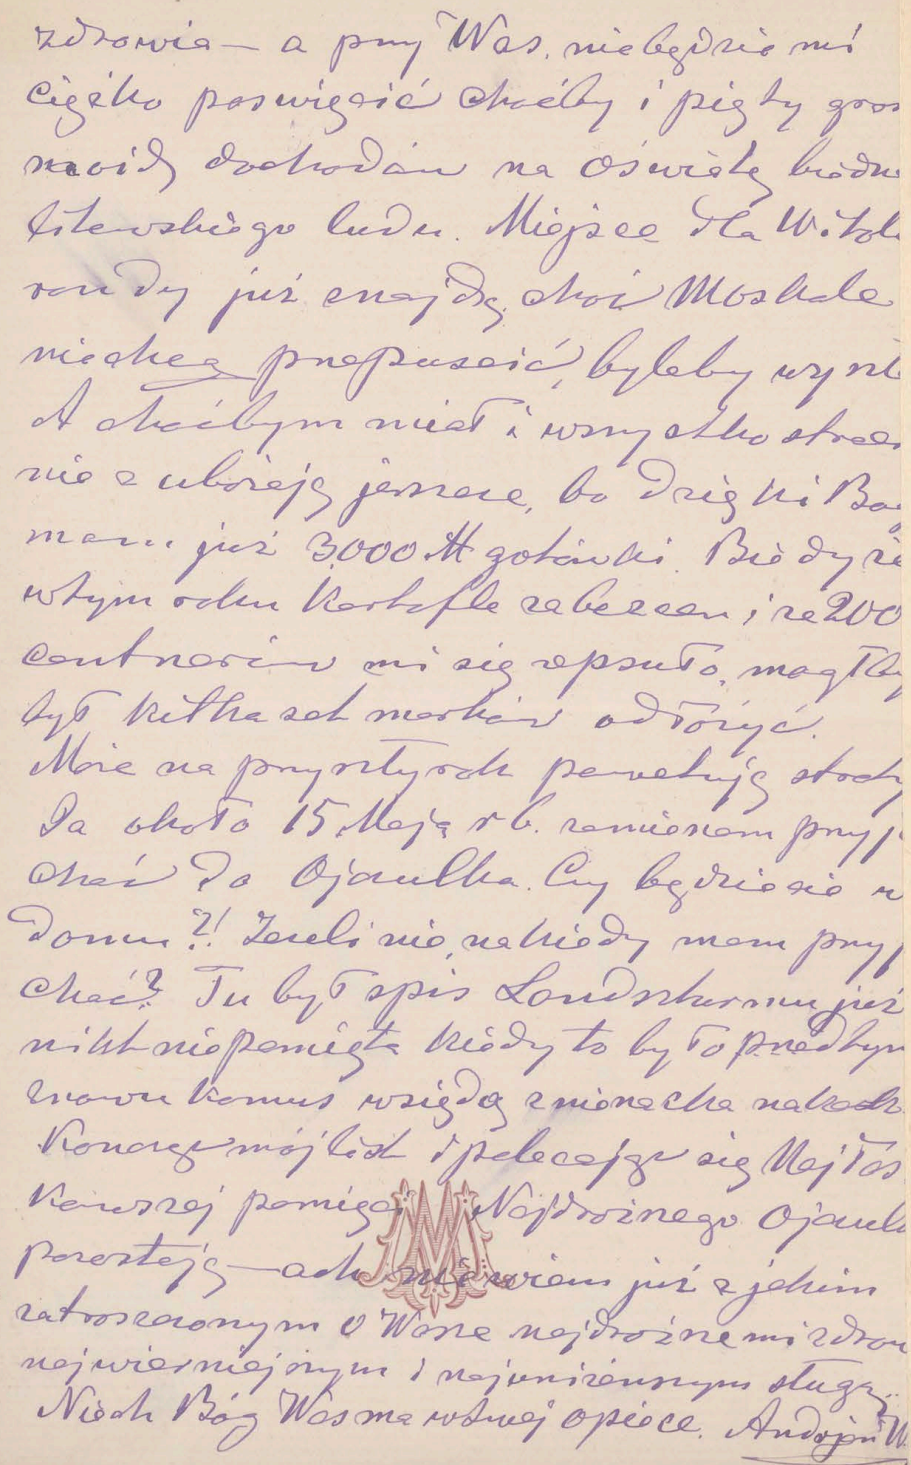 zdrowia — a przy Was, niebędzie mi
ciężko poswięcić choćby i piąty gros
moich dochodów na Oświatę biedne
litewskiego ludu. Miejsce dla Witol
raudy już znajdę, choć Moskale
niechcą przepuscić, byleby wysz
A choćbym miał i wszystko strac
nie zubożeję jeszcze, bo Dzięki Bog
mam już 3000 M gotówki. Biedy że
wtym roku Kartofle zabezcen i że 200
centnarów mi się zepsuło, mogłby
był kilkaset marków odłożyć.
Może na przyszłych powetuję straty
Ja około 15 Maja r b. zamierzam przyj
chać do Ojczulka. Czy będziecie w
domu?! Jeżeli nie, nakiedy mam przyj
chać? Tu był spis Landszturmu już
nikt niepamięta kiedy to było, przedtym
znowu komus wsiędą
Kończąc mój list i polecając się Najłas
kawszej pamięci Najdroższego Ojczul
pozostaję — ach niewiem już z jakim
zatroszczonym o Wasze najdroższe mi zdrow
najwierniejszym i najuniżenszym sługą.
Niech Bóg Was ma wswej opiece. Andrzej W